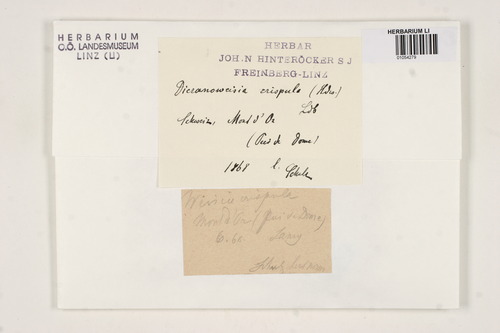 HERBARIUM
O.Ö. LANDESMUSEUM
LINZ (LI)
HERBARIUM LI
01054279
HERBAR
JOH. N HINTERÖCKER S J
FREINBERG-LINZ
Dicranoweisia crispula (Hdw.)
Ldb
Schweiz, Mont d'Or
(Puis de Dome)
1868 l.
Weisia crispula
Mont d'Or (Puis de Dome)